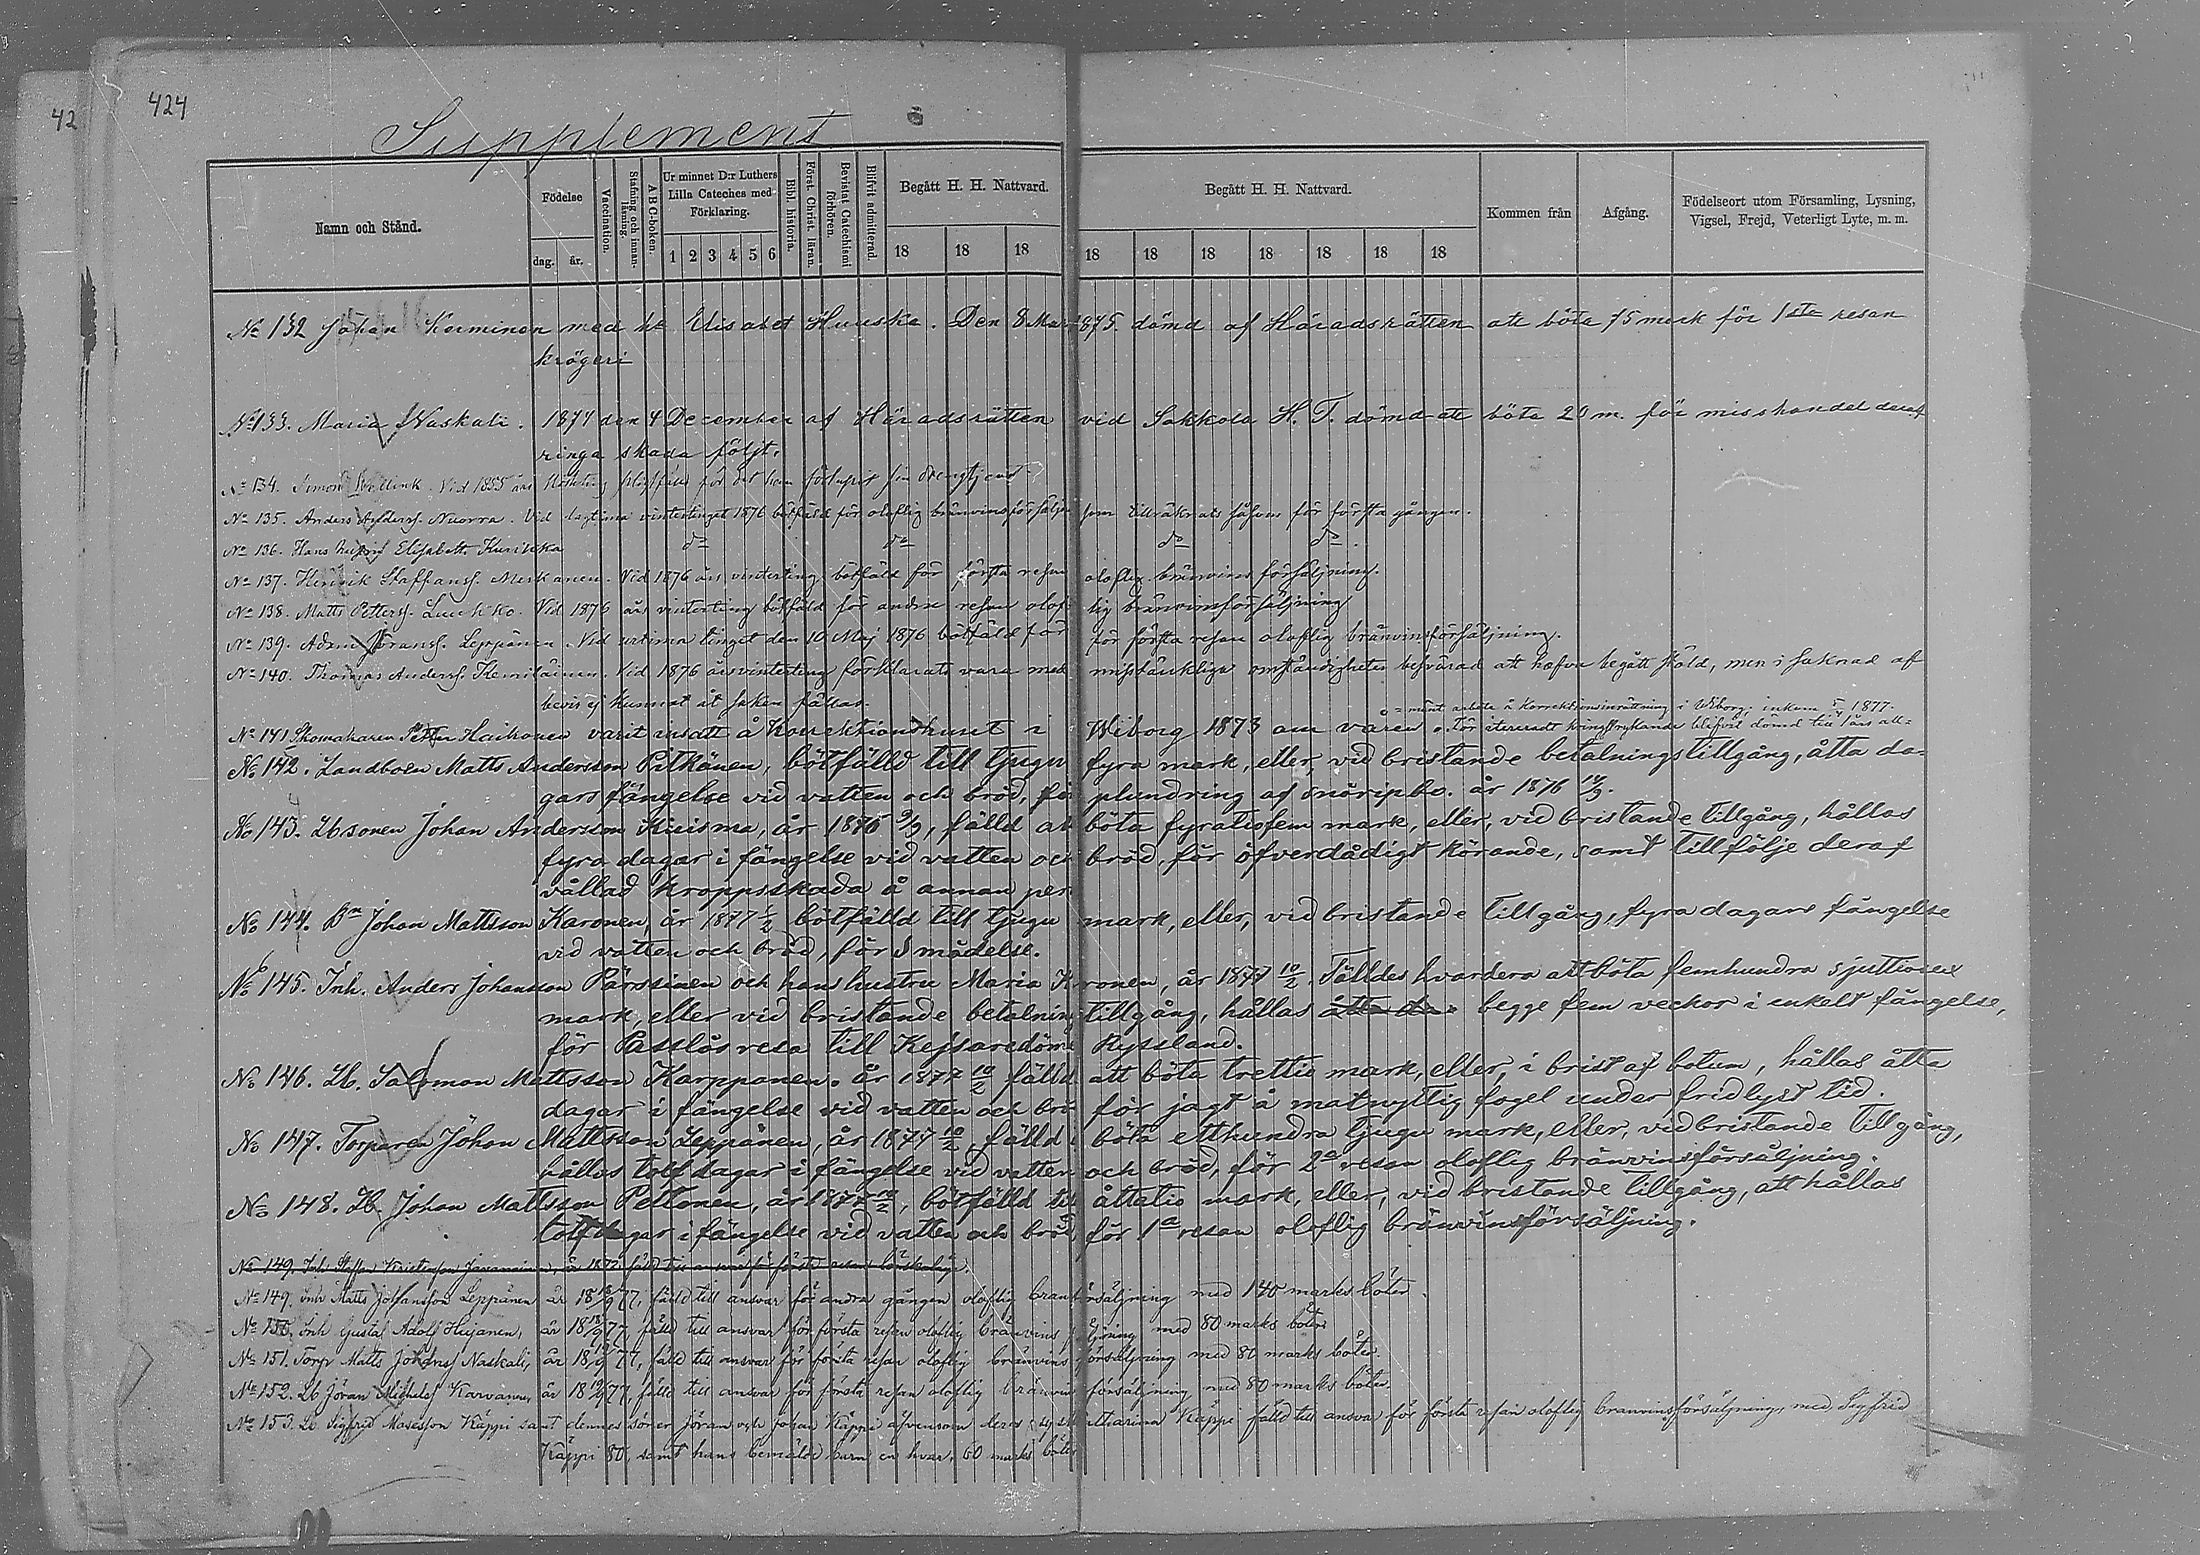 42
424
Supplement
Namn och Stånd.
Födelse
dag.
år.
Vaccination.
Stafning och innan-läsning.
ABC-boken.
Ur minnet D:r Luthers Lilla Cateches med Förklaring.
1 2 3 4 5 6
Bibl. historia.
Först. Christ. läran.
Bevistat Catechismi förhören.
Blifvit admitterad.
Begått H. H. Nattvard.
18 18 18
Begått H. H. Nattvard.
18 18 18 18 18 18 18
Kommen från
Afgång.
Födelseort utom Församling, Lysning, Vigsel, Frejd, Veterligt Lyte, m. m.
No 132 Johan Kerminen med h. Elisabet Huuska. Den 8 Mars 1875 dömd af Häradsrätten att böta 75 mark för 1sta resan
krögeri
No 133. Maria Naskali. 1877 den 4 December af Häradsrätten vid Sakkola H. T. dömd att böta 20 m. för misshandel deraf
ringa skada följt.
No 134. Simon Vid 1855 års för det han förlupit sin drengtjenst
No 135. Anders Anderss. Nuora. Vid lagtima vintertinget 1876 bötfäld för oloflig bränvinsförsäljn som tillräknats såsom för första gången.
No 136. Hans hustru Elisabeth do do do do
No 137. Henrik Staffanss. Meskanen. Vid 1876 års vinterting bötfäld för första resan oloflig bränvins försäljning.
No 138. Matts Petterss. Luukko. Vid 1876 års vinterting bötfäld för andra resan oloflig bränvinsförsäljning
No 139. Adam Göranss. Leppänen. Vid urtima tinget den 10 Maj 1876 bötfäld för för första resan oloflig bränvinsförsäljning.
No 140. Thomas Anderss. Kemiläinen. Vid 1876 års vinterting förklarats vara med misstänkliga omständigheter besvärad att hafva begått stöld, men i saknad af
bevis ej kunnat åt saken fällas.
månt. arbete å Korrektionsinrättning i Wiborg; inkom 1877.
No 141 Skomakaren Petter Haikonen varit insatt å Korrektionshuset i Wiborg 1873 om våren. För itereradt kringstrykande blifvit dömd till 1 års all-
No 142. Landboen Matts Andersson Pitkänen, bötfälld till tjugu fyra mark, eller, vid bristande betalningstillgång, åtta da-
gars fängelse vid vatten och bröd, för plundring af snöripbo. år 1876
No 143. Lbsonen Johan Andersson Kuisma, år 1876 9/9, fälld att böta fyratiofem mark, eller, vid bristande tillgång, hållas
fyra dagar i fängelse vid vatten och bröd, för öfverdådigt körande, samt till följe deraf
vållad kroppsskada å annan per
No 144. Bn Johan Mattsson Karonen, år 1877 bötfälld till tjugu mark, eller, vid bristande tillgång, fyra dagars fängelse
vid vatten och bröd, för smädelse.
No 145. Inh. Anders Johansson Pärssinen och hans hustru Maria Karonen, år 1877 10/2, Fälldes hvardera att böta femhundra sjuttiosex
mark, eller vid bristande betalningstillgång, hållas begge fem veckor i enkelt fängelse,
för Passlös resa till Kejsaredömet Ryssland.
No 146. Lb. Salomon Mattsson Karppanen. år 1877 10/2 fälld att böta trettio mark, eller, i brist af botum, hållas åtta
dagar i fängelse vid vatten och bröd för jagt å matnyttig fogel under fridlyst tid.
No 147. Torparen Johan Mattsson Leppänen, år 1877 10/2, fälld böta etthundra tjugu mark, eller, vid bristande tillgång,
hållas tolf dagar i fängelse vid vatten och bröd, för 2a resan oloflig bränvinsförsäljning.
No 148. Lb. Johan Mattsson Peltonen, år 1877 10/2, bötfälld till åttatio mark, eller, vid bristande tillgång, att hållas
tolf dagar i fängelse vid vatten och bröd för 1a resan oloflig bränvinsförsäljning.
No 149. Inh. Staffan år 1877 fälld till ansvar för första resan
No 149. Inh Matts Johansson Leppänen år 18 77, fälld till ansvar för andra gången oloflig bränvinsförsäljning med 140 marks böter.
No 150. Inh Gustaf Adolf Hujanen, år 18 77 fälld till ansvar för första resan oloflig bränvins försäljning med 80 marks böter
No 151. Torp Matts Johanss Naskali, år 18 77, fälld till ansvar för första resan oloflig bränvins försäljning med 80 marks böter.
No 152. Lb Jöran Michelss Karvanen, år 18 77, fälld till ansvar för första resan oloflig bränvins försäljning med 80 marks böter.
No 153. Lb Sigfrid Masesson Käppi samt dennes söner Jöran och Johan Käppi äfvensom deras syster Käppi fälld till ansvar för första resan oloflig bränvinsförsäljning, med Sigfrid
Käppi 80, samt hans bemälde barn en hvar, 60 marks böter